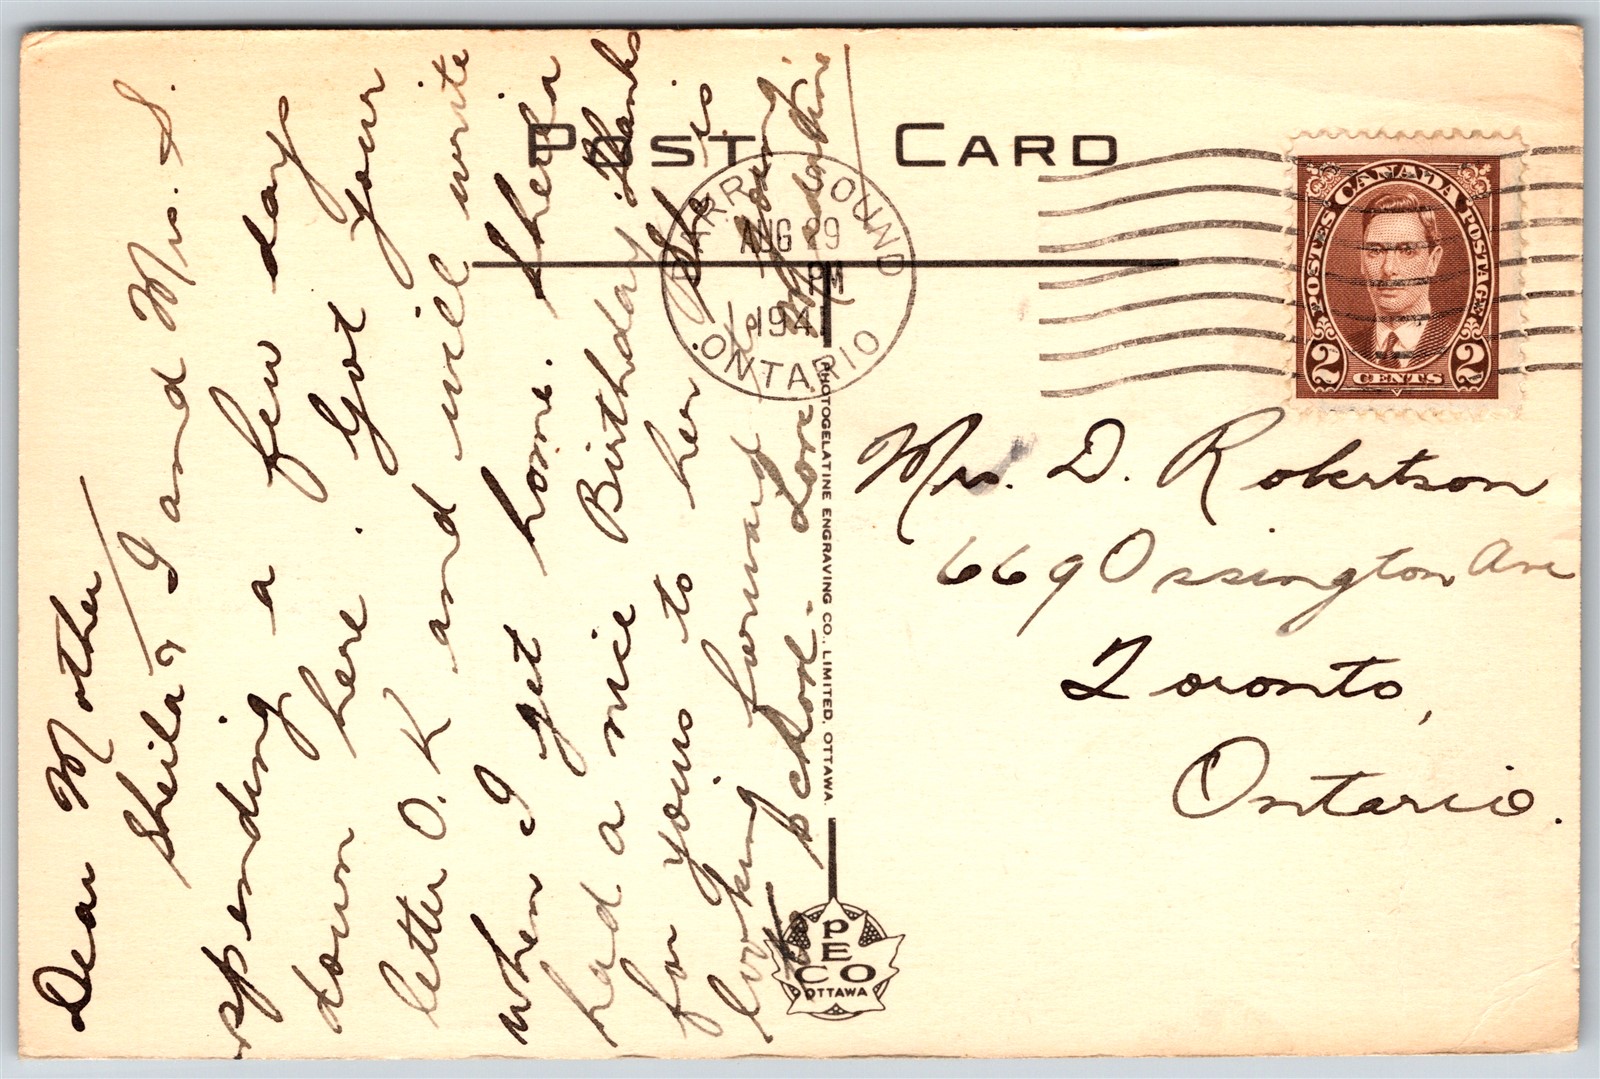 POST CARD
PARRY SOUND
AUG 29
PM
194
ONTARIO
CANADA
POSTES POSTAGE
2 CENTS 2
Dear Mother
Sheila & I and Mrs. S.
spending a few day
down here. Got your
letter O.K and will write
when I get home. Sheila
had a nice Birthday thanks
for yours to her. She is
looking forward to going
to school. Love
Mrs. D. Robertson
669 Ossington Ave
Toronto,
Ontario.
PHOTOGELATINE ENGRAVING CO., LIMITED, OTTAWA.
PECO
OTTAWA